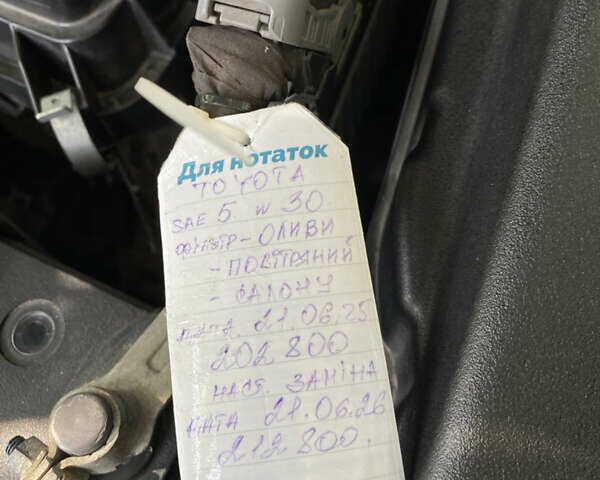 Для нотаток
TOYOTA
SAE 5 w 30
фільтр - ОЛИВИ
- ПОВІТРЯНИЙ
- САЛОНУ
ДАТА 21.06.25
202 800
НАСТ. ЗАМІНА
ДАТА 21.06.26
212 800.